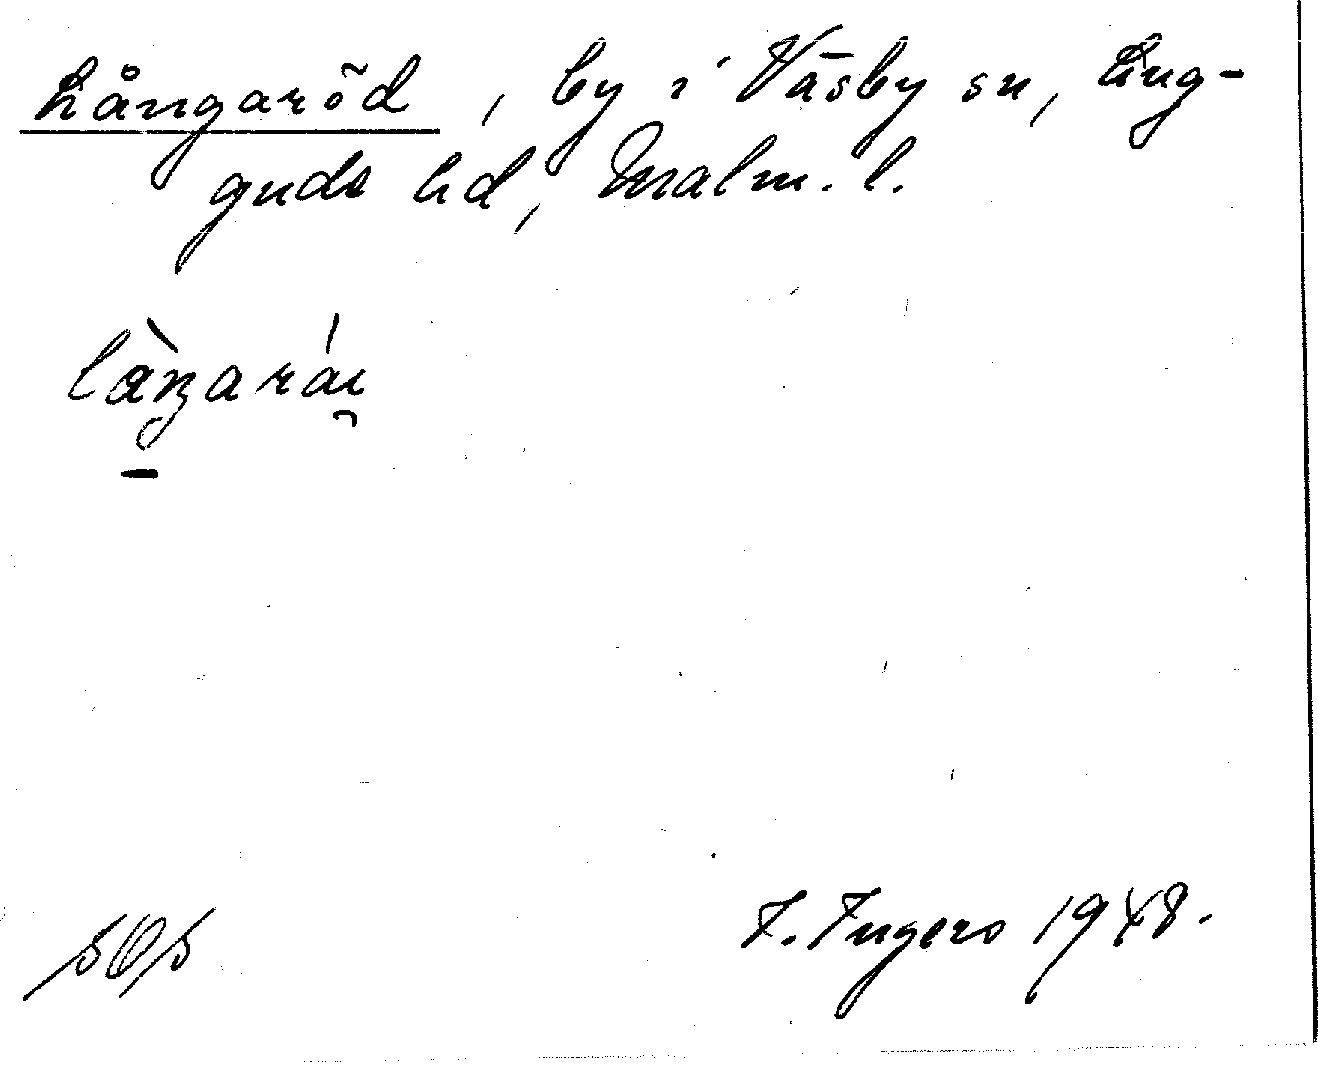 Långaröd, by i Väsby sn, Lug-
gude hd, Malm. l.
låŋarái̯
SOS
I. Ingers 1948.